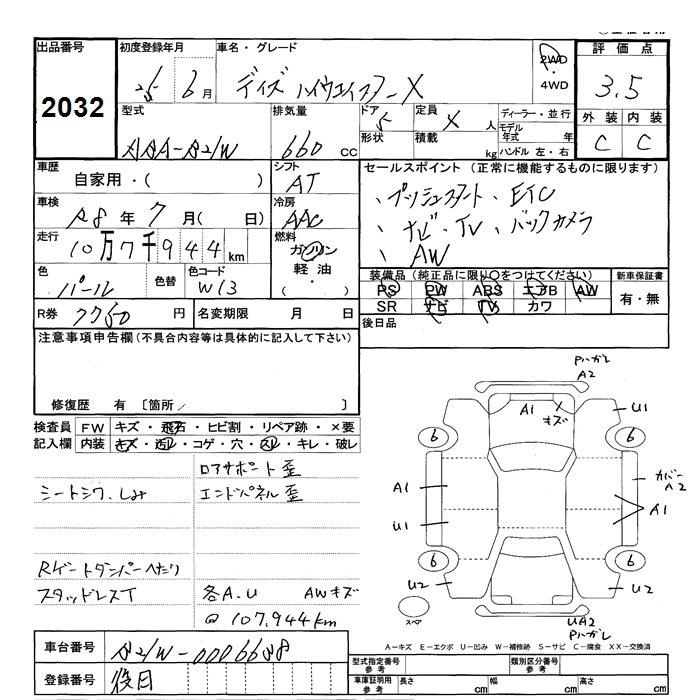 出品番号
2032
初度登録年月
25 6月
車名・グレード
デイズ ハイウェイスターX
2WD
・
4WD
評価点
3.5
外装 内装
C C
型式
AAA-B21W
排気量
660 cc
ドア 5
形状
定員 人
積載 kg
ディーラー・並行
モデル年式 年
ハンドル 左・右
車歴
自家用・( )
シフト
AT
車検
R8年7月( 日)
冷房
AAC
走行
10万7千944km
燃料
ガソリン
軽油
( ・ )
色
パール
色替
色コード
W13
R券 7750 円
名変期限 月 日
セールスポイント (正常に機能するものに限ります)
、プッシュスタート、ETC
、ナビ、TV、バックカメラ
、AW
装備品 (純正品に限り○をつけてください)
PS PW ABS エアB AW
SR ナビ TV カワ
新車保証書
有・無
後日品
注意事項申告欄(不具合内容等は具体的に記入して下さい)
修復歴 有 〔箇所/ 〕
検査員記入欄
FW キズ・飛石・ヒビ割・リペア跡・×要
内装 キズ・汚レ・コゲ・穴・スレ・キレ・破レ
シートシワ、しみ
Rゲートダンパーへたり
スタッドレスT
ロアサポート歪
エンドパネル歪
各A.U AWキズ
@107,944km
Pハガレ
A2
A1
X
キズ
U1
6
6
A1
U1
カバー
A2
A1
6
6
U2
U2
スペア
UA2
Pハガレ
A-キズ E-エクボ U-凹み W-補修跡 S-サビ C-腐食 XX-交換済
車台番号 B21W-0006688
登録番号 後日
型式指定番号
参考
類別区分番号
参考
車庫証明用
参考
長さ cm
幅 cm
高さ cm